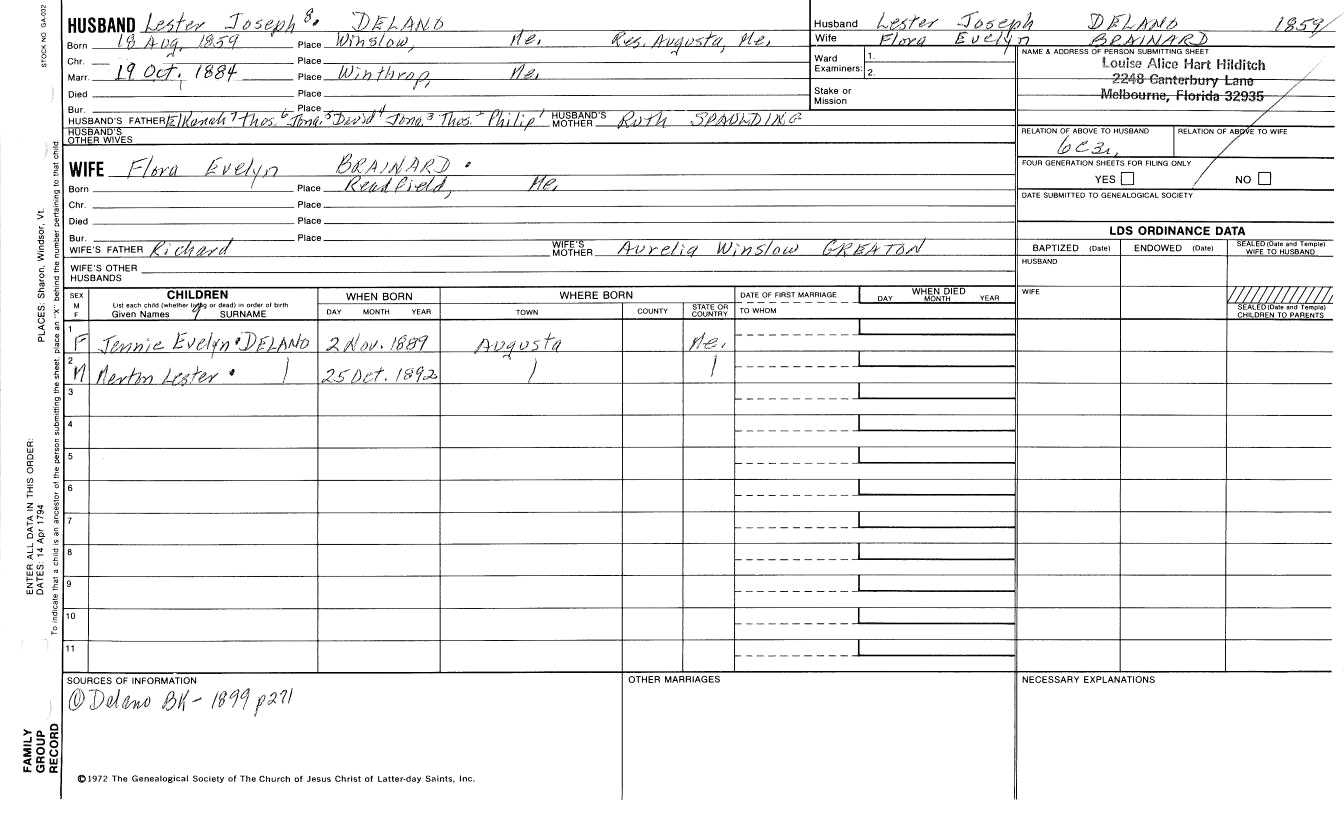 STOCK NO. GA-002
HUSBAND Lester Joseph 8. DELANO
Born 18 Aug. 1859 Place Winslow, Me. Res. Augusta, Me.
Chr. Place
Marr. 19 Oct. 1884 Place Winthrop, Me.
Died Place
Bur. Place
HUSBAND'S FATHER Elkanah 7 Thos. 6 Jona. 5 David 4 Jona. 3 Thos. 2 Philip 1 HUSBAND'S MOTHER Ruth SPAULDING
HUSBAND'S OTHER WIVES
WIFE Flora Evelyn BRAINARD.
Born Place Readfield, Me.
Chr. Place
Died Place
Bur. Place
WIFE'S FATHER Richard WIFE'S MOTHER Aurelia Winslow GREATON
WIFE'S OTHER HUSBANDS
Husband Lester Joseph DELANO 1859
Wife Flora Evelyn BRAINARD
Ward Examiners: 1.
2.
Stake or Mission
NAME & ADDRESS OF PERSON SUBMITTING SHEET
Louise Alice Hart Hilditch
2248 Canterbury Lane
Melbourne, Florida 32935
RELATION OF ABOVE TO HUSBAND RELATION OF ABOVE TO WIFE
6C3r.
FOUR GENERATION SHEETS FOR FILING ONLY
YES NO
DATE SUBMITTED TO GENEALOGICAL SOCIETY
LDS ORDINANCE DATA
BAPTIZED (Date) ENDOWED (Date) SEALED (Date and Temple) WIFE TO HUSBAND
HUSBAND
WIFE
SEALED (Date and Temple) CHILDREN TO PARENTS
SEX M F CHILDREN WHEN BORN WHERE BORN DATE OF FIRST MARRIAGE WHEN DIED
List each child (whether living or dead) in order of birth
Given Names SURNAME DAY MONTH YEAR TOWN COUNTY STATE OR COUNTRY TO WHOM DAY MONTH YEAR
1 F Jennie Evelyn. DELANO 2 Nov. 1889 Augusta Me.
2 M Merton Lester . 25 Oct. 1892
3
4
5
6
7
8
9
10
11
SOURCES OF INFORMATION
① Delano BK - 1899 p271
OTHER MARRIAGES
NECESSARY EXPLANATIONS
©1972 The Genealogical Society of The Church of Jesus Christ of Latter-day Saints, Inc.
PLACES: Sharon, Windsor, Vt.
To indicate that a child is an ancestor of the person submitting the sheet, place an "X" behind the number pertaining to that child
ENTER ALL DATA IN THIS ORDER:
DATES: 14 Apr 1794
FAMILY GROUP RECORD